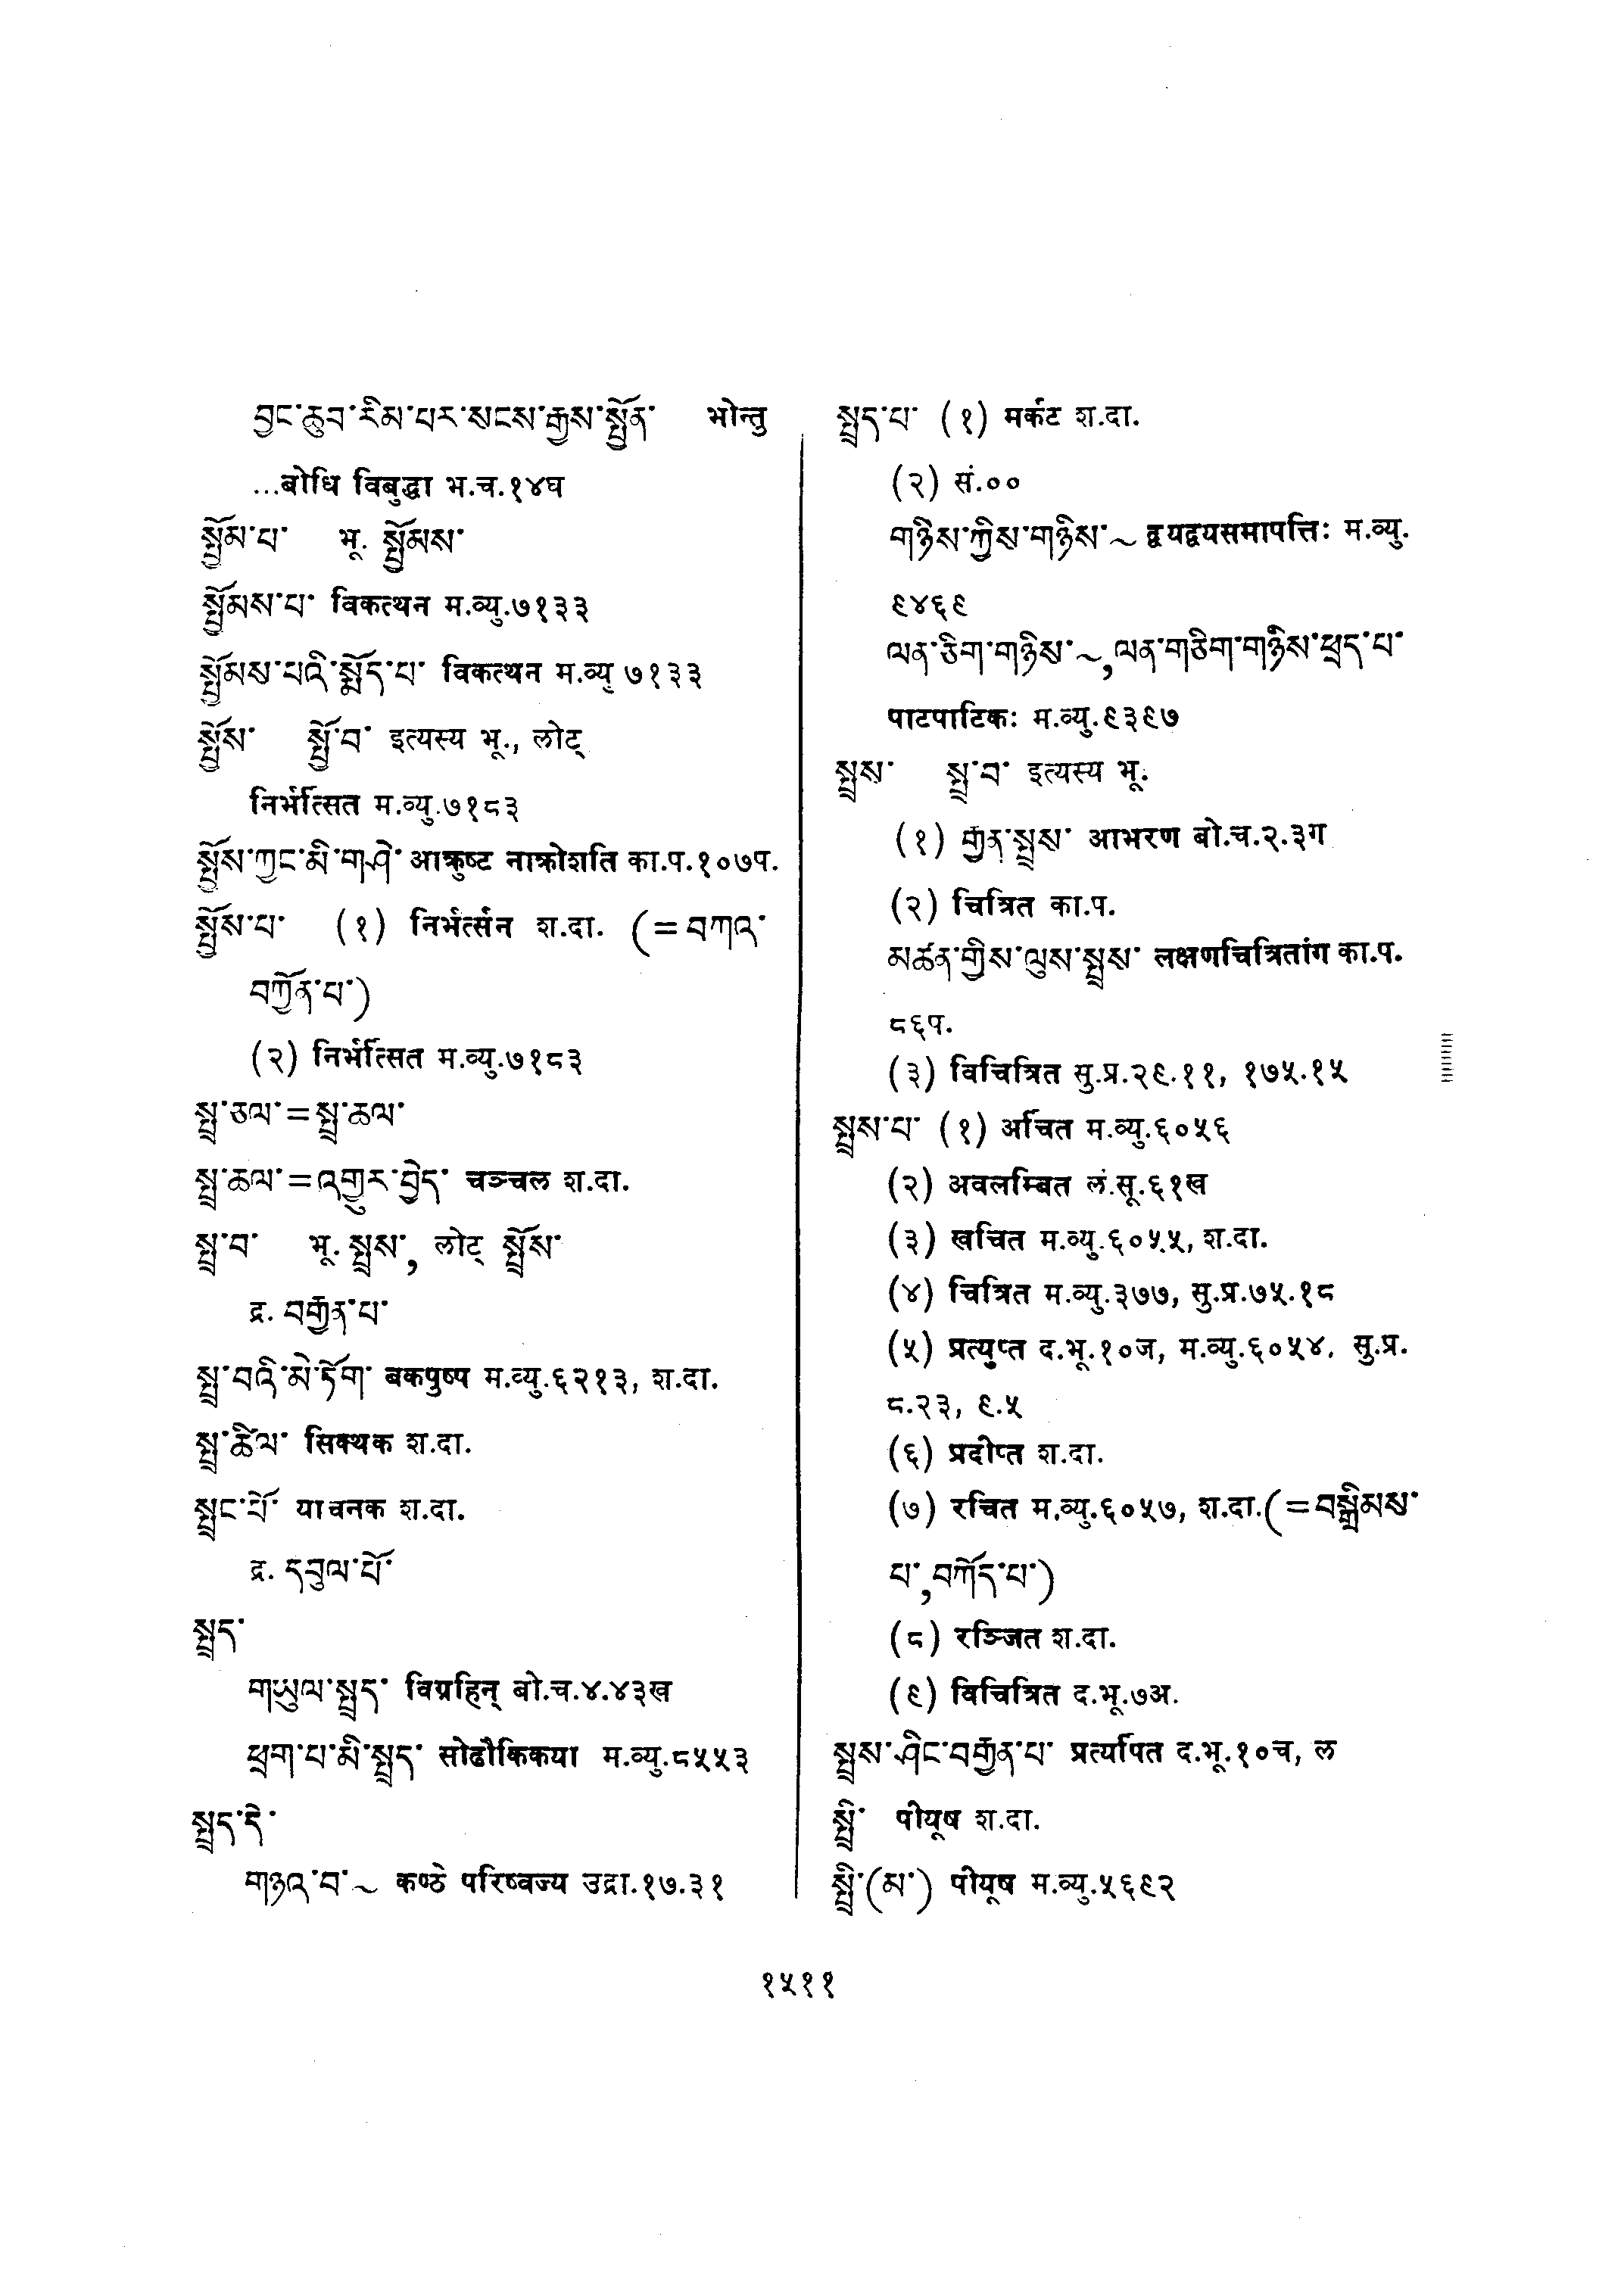 བྱང་ཆུབ་རིམ་པར་སངས་རྒྱས་སྤྱོན་ भोन्तु
...बोधि विबुद्धा भ.च.१४घ
སྤྱོམ་པ་ भू. སྤྱོམས་
སྤྱོམས་པ་ विकत्थन म.व्यु.७१३३
སྤྱོམས་པའི་སྨོད་པ་ विकत्थन म.व्यु ७१३३
སྤྱོས་ སྤྱོ་བ་ इत्यस्य भू., लोट्
निर्भर्त्सित म.व्यु.७१८३
སྤྱོས་ཀྱང་མི་གཤེ་ आक्रुष्ट नाक्रोशति का.प.१०७प.
སྤྱོས་པ་ (१) निर्भर्त्सन श.दा. (=བཀའ་
བཀྱོན་པ་)
(२) निर्भर्त्सित म.व्यु.७१८३
སྤྲ་ཅལ་=སྤྲ་ཆལ་
སྤྲ་ཆལ་=འགྱུར་བྱེད་ चञ्चल श.दा.
སྤྲ་བ་ भू. སྤྲས་, लोट् སྤྲོས་
द्र. བརྒྱན་པ་
སྤྲ་བའི་མེ་ཏོག་ बकपुष्प म.व्यु.६२१३, श.दा.
སྤྲ་ཚིལ་ सिक्थक श.दा.
སྤྲང་པོ་ याचनक श.दा.
द्र. དབུལ་པོ་
སྤྲད་
གཡུལ་སྤྲད་ विग्रहिन् बो.च.४.४३ख
ཕྲག་པ་མི་སྤྲད་ सोढौकिकया म.व्यु.८५५३
སྤྲད་དེ་
གཉའ་བ་~ कण्ठे परिष्वज्य उद्रा.१७.३१
སྤྲད་པ་ (१) मर्कट श.दा.
(२) सं.००
གཉིས་ཀྱིས་གཉིས་~ द्वयद्वयसमापत्तिः म.व्यु.
९४६९
ལན་ཅིག་གཉིས་~,ལན་གཅིག་གཉིས་ཕྲད་པ་
पाटपाटिकः म.व्यु.९३९७
སྤྲས་ སྤྲ་བ་ इत्यस्य भू.
(१) རྒྱན་སྤྲས་ आभरण बो.च.२.३ग
(२) चित्रित का.प.
མཚན་གྱིས་ལུས་སྤྲས་ लक्षणचित्रितांग का.प.
८६प.
(३) विचित्रित सु.प्र.२९.११, १७५.१५
སྤྲས་པ་ (१) अर्चित म.व्यु.६०५६
(२) अवलम्बित लं.सू.६१ख
(३) खचित म.व्यु.६०५५, श.दा.
(४) चित्रित म.व्यु.३७७, सु.प्र.७५.१८
(५) प्रत्युप्त द.भू.१०ज, म.व्यु.६०५४. सु.प्र.
८.२३, ९.५
(६) प्रदीप्त श.दा.
(७) रचित म.व्यु.६०५७, श.दा.(=བསྒྲིམས་
པ་,བཀོད་པ་)
(८) रञ्जित श.दा.
(९) विचित्रित द.भू.७अ.
སྤྲས་ཤིང་བརྒྱན་པ་ प्रत्यर्पित द.भू.१०च, ल
སྤྲི་ पीयूष श.दा.
སྤྲི་(མ་) पीयूष म.व्यु.५६९२
१५११